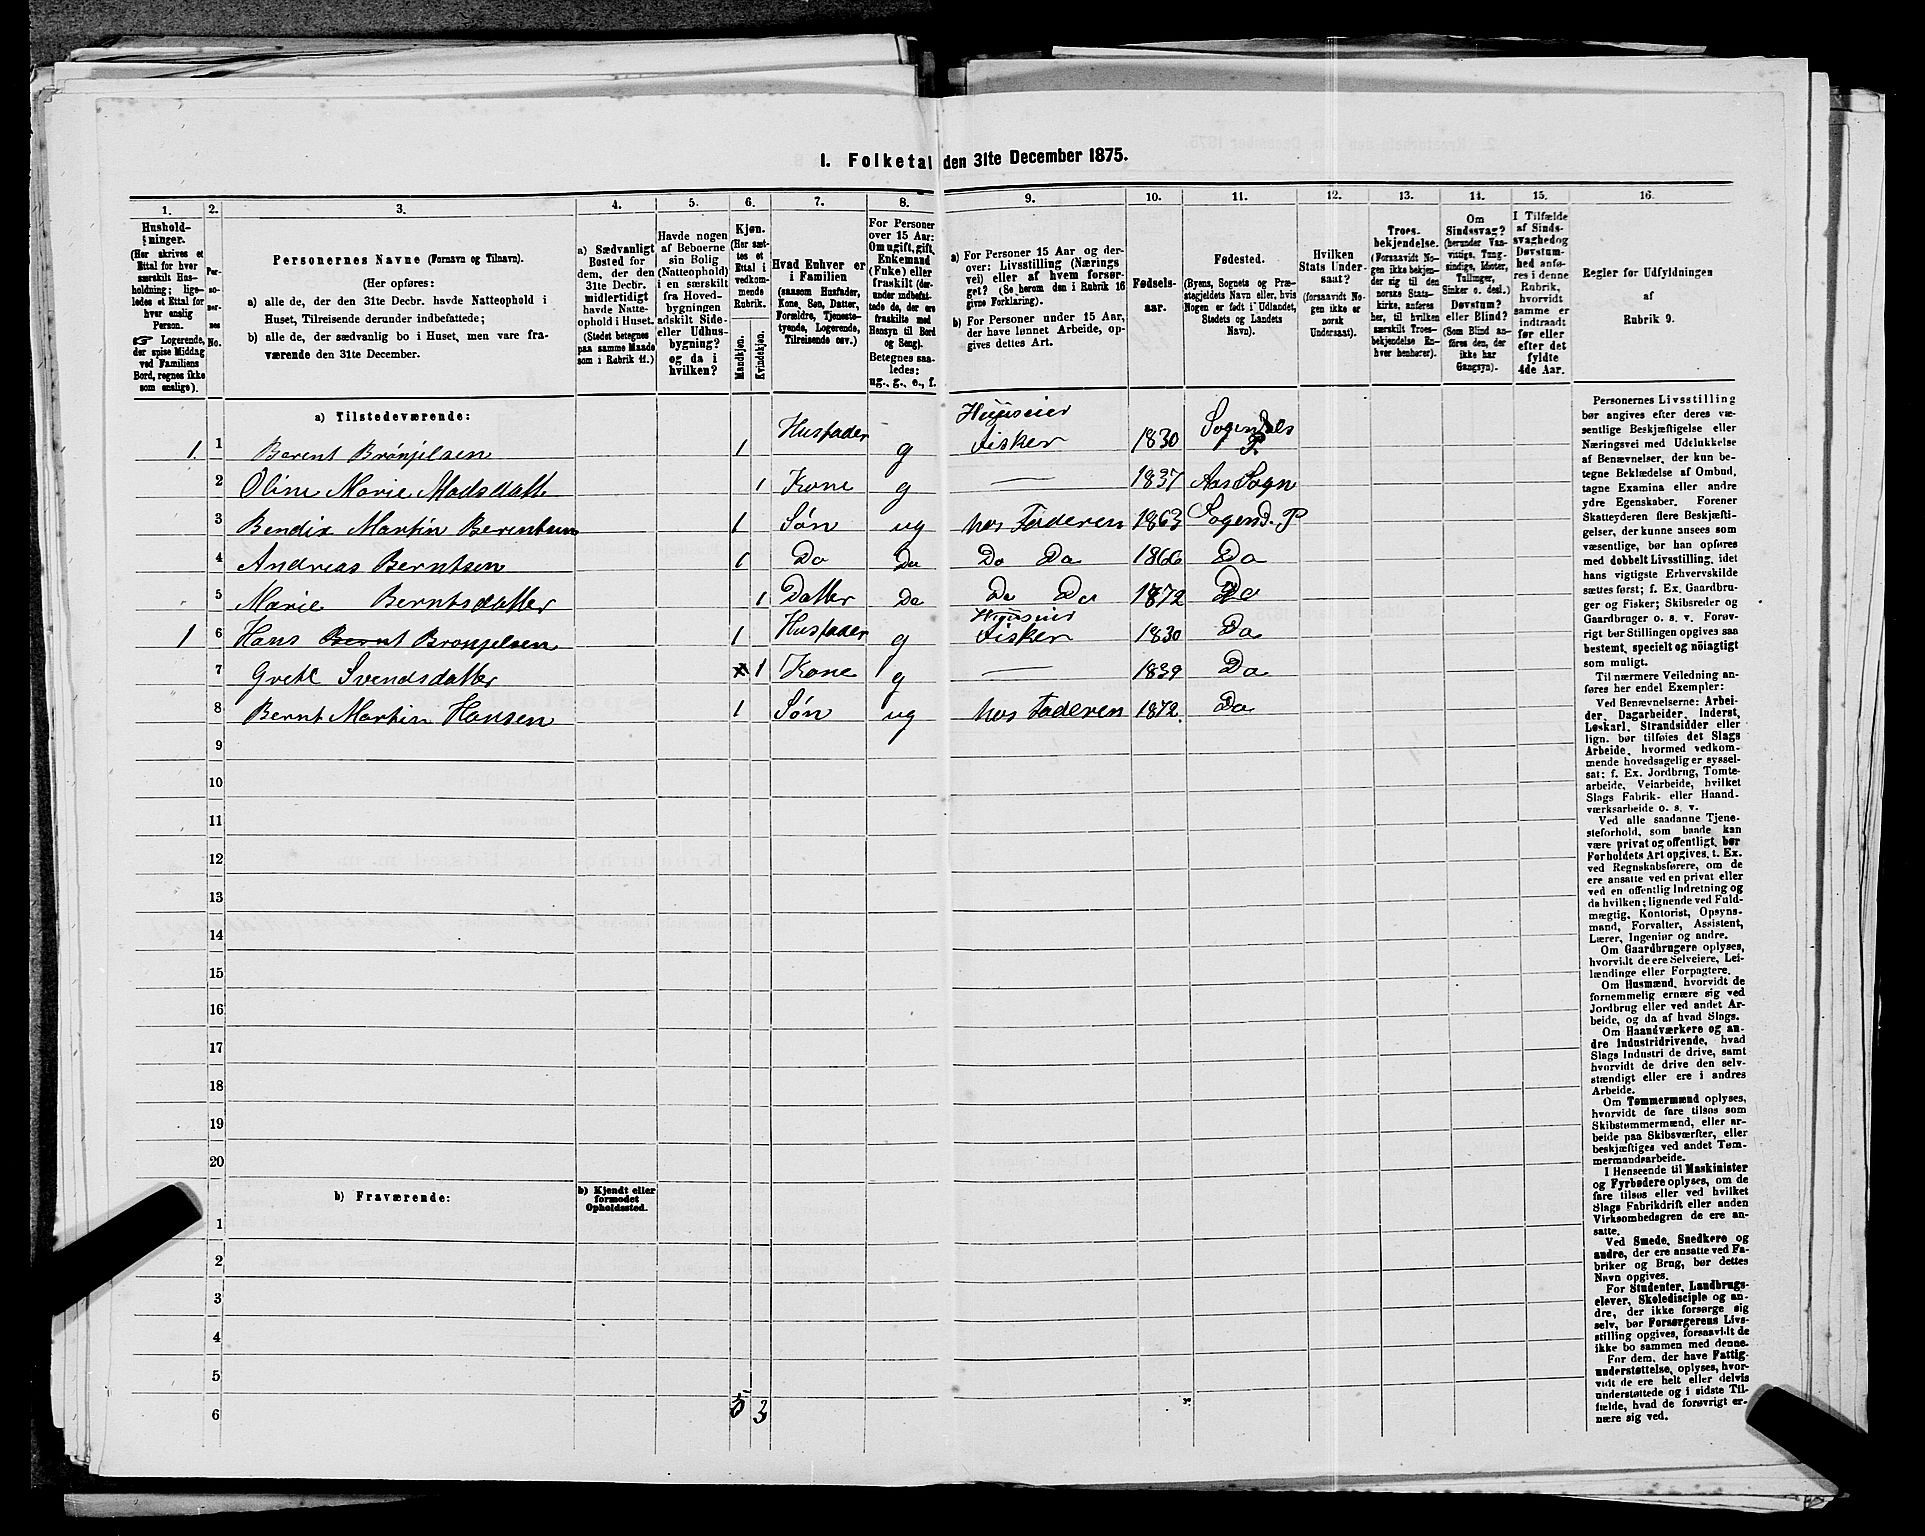 I. Folketal den 31te December 1875.
1. 2. 3. 4. 5. 6. 7. 8. 9. 10. 11. 12. 13. 14. 15. 16.
Hushold-
ninger.
(Her skrives et
Ettal for hver
særskilt Hus-
holdning; lige-
ledes et Ettal for
hver enslig
Person.
☞ Logerende,
der spise Middag
ved Familiens
Bord, regnes ikke
som enslige).
Per-
so-
ner-
nes
No.
Personernes Navne (Fornavn og Tilnavn).
(Her opføres:
a) alle de, der den 31te Decbr. havde Natteophold i
Huset, Tilreisende derunder indbefattede;
b) alle de, der sædvanlig bo i Huset, men vare fra-
værende den 31te December.
a) Sædvanligt
Bosted for
dem, der den
31te Decbr.
midlertidigt
havde Natte-
ophold i Huset.
(Stedet betegnes
paa samme Maade
som i Rubrik 11.)
Havde nogen
af Beboerne
sin Bolig
(Natteophold)
i en særskilt
fra Hoved-
bygningen
adskilt Side-
eller Udhus-
bygning?
og da i
hvilken?
Kjøn.
(Her sæt-
tes et
Ettal i
vedkom-
mende
Rubrik.
Mandkjøn.
Kvindekjøn.
Hvad Enhver er
i Familien
(saasom Husfader,
Kone, Søn, Datter,
Forældre, Tjeneste-
tyende, Logerende,
Tilreisende osv.)
For Personer
over 15 Aar:
Om ugift, gift,
Enkemand
(Enke) eller
fraskilt (der-
under indbefat-
tede de, der ere
fraskilte med
Hensyn til Bord
og Seng).
Betegnes saa-
ledes:
ug., g., e., f.
a) For Personer 15 Aar og der-
over: Livsstilling (Nærings
vei) eller af hvem forsør-
get? (Se herom den i Rubrik 16
givne Forklaring).
b) For Personer under 15 Aar,
der have lønnet Arbeide, op-
gives dettes Art.
Fødsels-
aar.
Fødested.
(Byens, Sognets og Præ-
stegjeldets Navn eller, hvis
Nogen er født i Udlandet,
Stedets og Landets
Navn).
Hvilken
Stats Under-
saat?
(forsaavidt No-
gen ikke er
norsk
Undersaat).
Troes-
bekjendelse.
(Forsaavidt No-
gen ikke bekjen-
der sig til den
norske Stats-
kirke, anføres
her, til hvilken
særskilt Troes-
bekjendelse En-
hver henhører).
Om
Sindssvag?
(herunder Van-
vittige, Tung-
sindige, Idioter,
Tullinger,
Sinker o. desl.)
Døvstum?
eller Blind?
(Som Blind an-
føres den, der
ikke har
Gangsyn).
I Tilfælde
af Sinds-
svaghed og
Døvstum-
hed anfø-
res i denne
Rubrik,
hvorvidt
samme er
indtraadt
før eller
efter det
fyldte
4de Aar.
Regler for Udfyldningen
af
Rubrik 9.
a) Tilstedeværende:
1. 1 Berent Brönjelsen 1 Husfader g Huuseier Fisker 1830 Sogendals P.
2 Oline Marie Madsdatt 1 Kone g — 1837 Aas Sogn
3 Bendix Martin Berentsen 1 Søn ug hos Faderen 1863 Sogend. P
4 Andreas Berntsen 1 Do Do Do Do 1866 Do
5 Marie Berntsdatter 1 Datter Do Do Do 1872 Do
1 6 Hans Bernt Bronjelsen 1 Husfader g Huuseier Fisker 1830 Do
7 Grete Svendsdatter 1 Kone g — 1839 Do
8 Bernt Martin Hansen 1 Søn ug hos Faderen 1872. Do
9
10
11
12
13
14
15
16
17
18
19
20
b) Fraværende:
b) Kjendt eller
formodet
Opholdssted.
1
2
3
4
5
6
5 3
Personernes Livsstilling
bør angives efter deres væ-
sentlige Beskjæftigelse eller
Næringsvei med Udelukkelse
af Benævnelser, der kun be-
tegne Beklædelse af Ombud,
tagne Examina eller andre
ydre Egenskaber. Forener
Skatteyderen flere Beskjæfti-
gelser, der kunne ansees som
væsentlige, bør han opføres
med dobbelt Livsstilling, idet
hans vigtigste Erhvervskilde
sættes først; f. Ex. Gaardbru-
ger og Fisker; Skibsreder og
Gaardbruger o. s. v. Forøv-
rigt bør Stillingen opgives saa
bestemt, specielt og nøiagtigt
som muligt.
Til nærmere Veiledning an-
føres her endel Exempler:
Ved Benævnelserne: Arbei-
der, Dagarbeider, Inderst,
Løskarl, Strandsidder eller
lign. bør tilføies det Slags
Arbeide, hvormed vedkom-
mende hovedsagelig er syssel-
sat: f. Ex. Jordbrug, Tomte-
arbeide, Veiarbeide, hvilket
Slags Fabrik- eller Haand-
værksarbeide o. s. v.
Ved alle saadanne Tjene-
steforhold, som baade kan
være privat og offentligt, bør
Forholdets Art opgives, f. Ex.
ved Regnskabsførere, om de
ere ansatte ved en privat eller
ved en offentlig Indretning og
da hvilken; lignende ved Fuld-
mægtig, Kontorist, Opsyns-
mand, Forvalter, Assistent,
Lærer, Ingeniør og andre.
Om Gaardbrugere oplyses,
hvorvidt de ere Selveiere, Lei-
lændinge eller Forpagtere.
Om Husmænd, hvorvidt de
fornemmelig ernære sig ved
Jordbrug eller ved andet Ar-
beide, og da af hvad Slags.
Om Haandværkere og an-
dre Industridrivende, hvad
Slags Industri de drive, samt
hvorvidt de drive den selv-
stændigt eller ere i andres
Arbeide.
Om Tømmermænd oplyses,
hvorvidt de fare tilsøs som
Skibstømmermænd, eller ar-
beide paa Skibsværfter, eller
beskjæftiges ved andet Tøm-
mermandsarbeide.
I Henseende til Maskinister
og Fyrbødere oplyses, om de
fare tilsøs eller ved hvilket
Slags Fabrikdrift eller anden
Virksomhedsgren de ere an-
satte.
Ved Smede, Snedkere og
andre, der ere ansatte ved Fa-
briker og Brug, bør dettes
Navn opgives.
For Studenter, Landbrugs-
elever, Skoledisciple og an-
dre, der ikke forsørge sig
selv, bør Forsørgerens Livs-
stilling opgives, forsaavidt de
ikke bo sammen med denne.
For dem, der have Fattig-
understøttelse, oplyses, hvor-
vidt de ere helt eller delvis
understøttede og i sidste Til-
fælde, hvad de forøvrigt er-
nære sig ved.